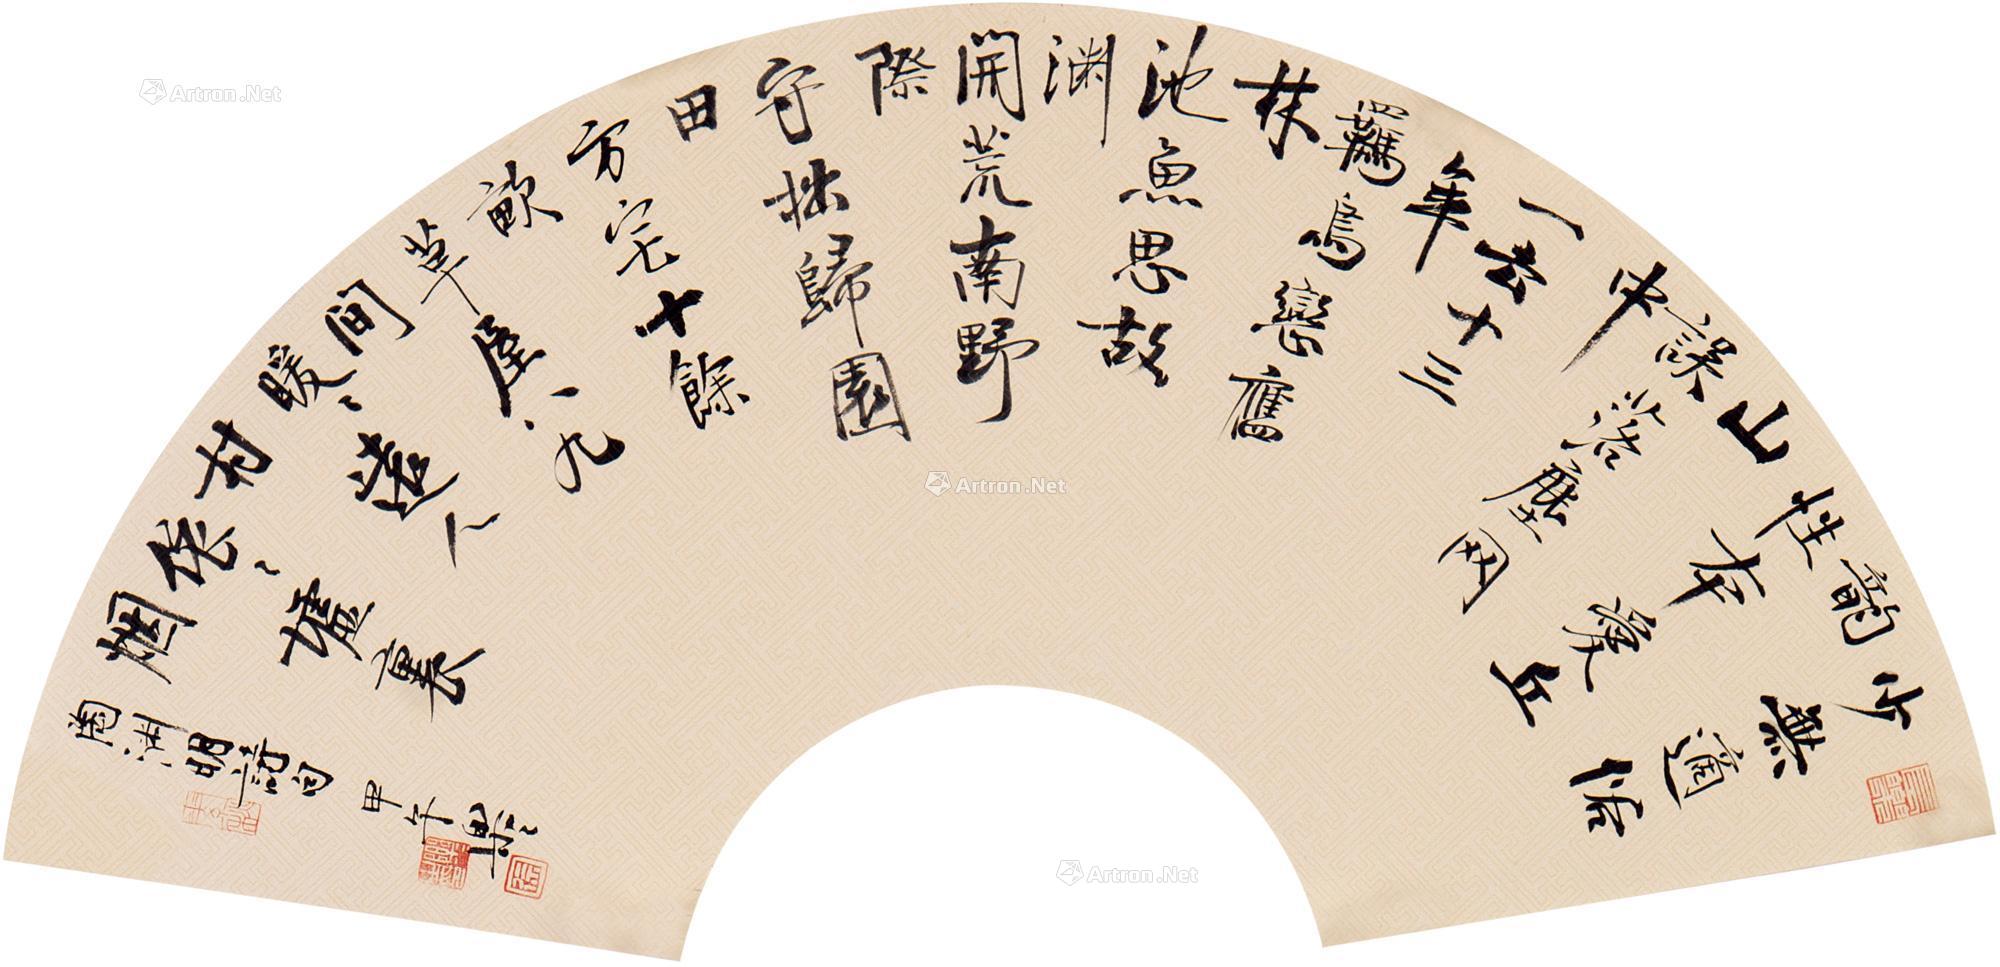 少無適俗
韵
性本愛丘
山
誤落塵网
中
一去十三
年
羈鳥戀舊
林
池魚思故
渊
開荒南野
際
守拙歸園
田
方宅十餘
畝
草屋八九
间
暖〻遠人
村
依〻墟裏
烟
陶渊明詩句
甲午
Artron.Net
Artron.Net
Artron.Net